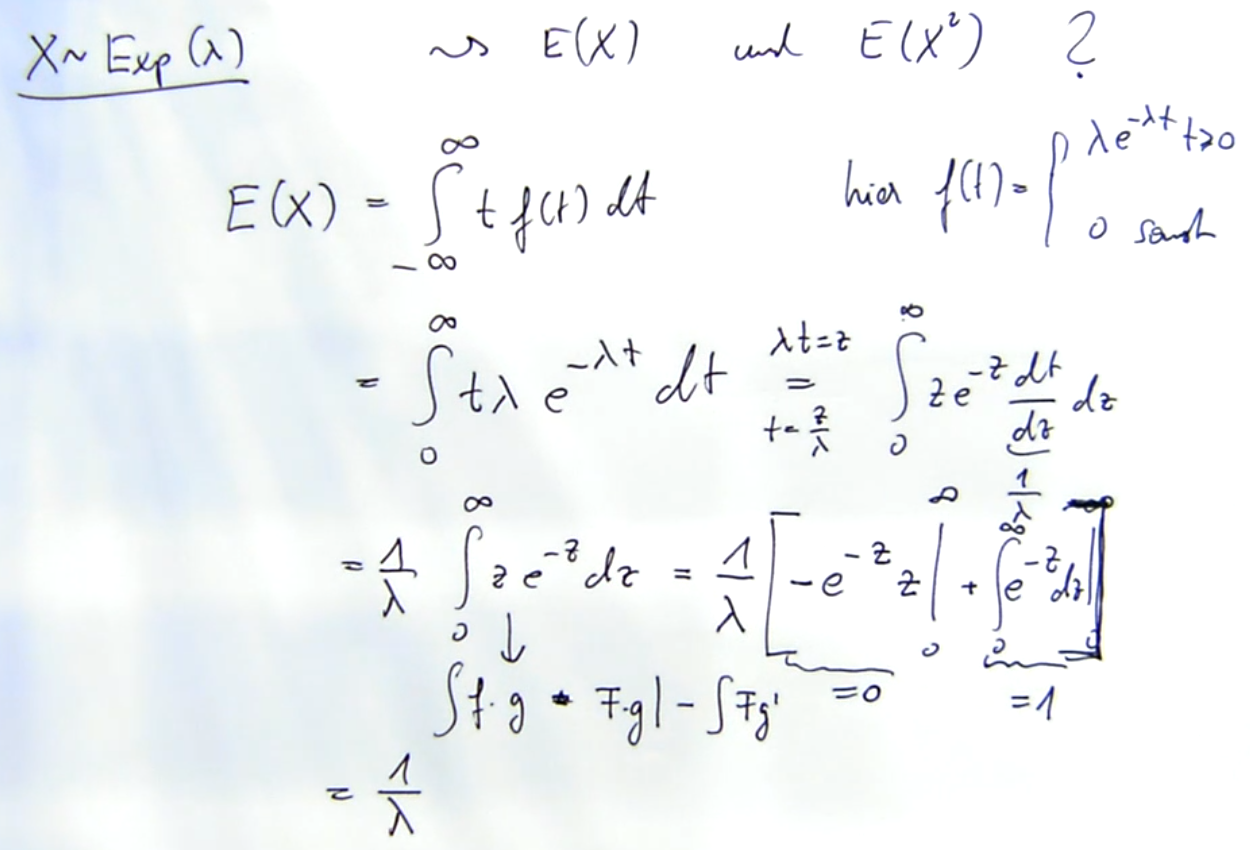 X ~ Exp(λ) ⇝ E(X) und E(X²) ?
E(X) = ∫_{-∞}^{∞} t f(t) dt hier f(t) = { λe^{-λt} t≥0
0 sonst
= ∫_0^∞ tλ e^{-λt} dt \overset{λt=z}{\underset{t=\frac{z}{λ}}{=}} ∫_0^∞ z e^{-z} \underbrace{\frac{dt}{dz}}_{\frac{1}{λ}} dz
= \frac{1}{λ} ∫_0^∞ z e^{-z} dz = \frac{1}{λ} [ \underbrace{-e^{-z} z |_0^∞}_{=0} + \underbrace{∫_0^∞ e^{-z} dz}_{=1} ]
↓
∫f·g = F·g| - ∫Fg'
= \frac{1}{λ}